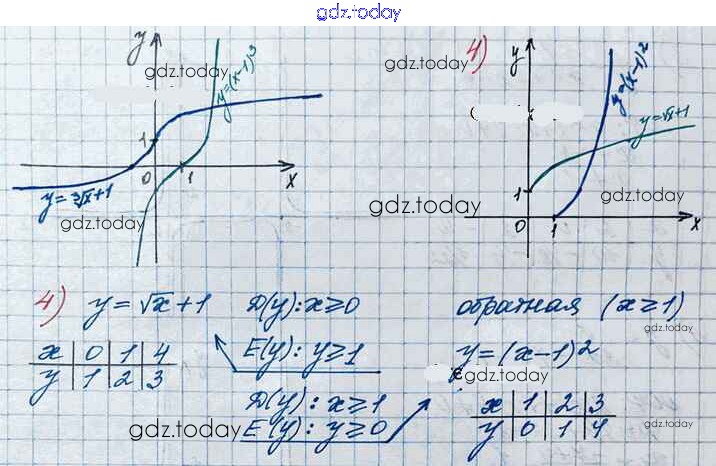 gdz.today
y
gdz.today
y=(x-1)³
1
0
1
x
y=∛x+1
gdz.today
4)
y
gdz.today
y=(x-1)²
y=√x+1
1
gdz.today
gdz.today
0
1
x
4) y=√x+1
x | 0 | 1 | 4
y | 1 | 2 | 3
D(y): x≥0
E(y): y≥1
D(y): x≥1
E(y): y≥0
gdz.today
обратная (x≥1)
gdz.today
y=(x-1)²
gdz.today
x | 1 | 2 | 3
y | 0 | 1 | 4
gdz.today